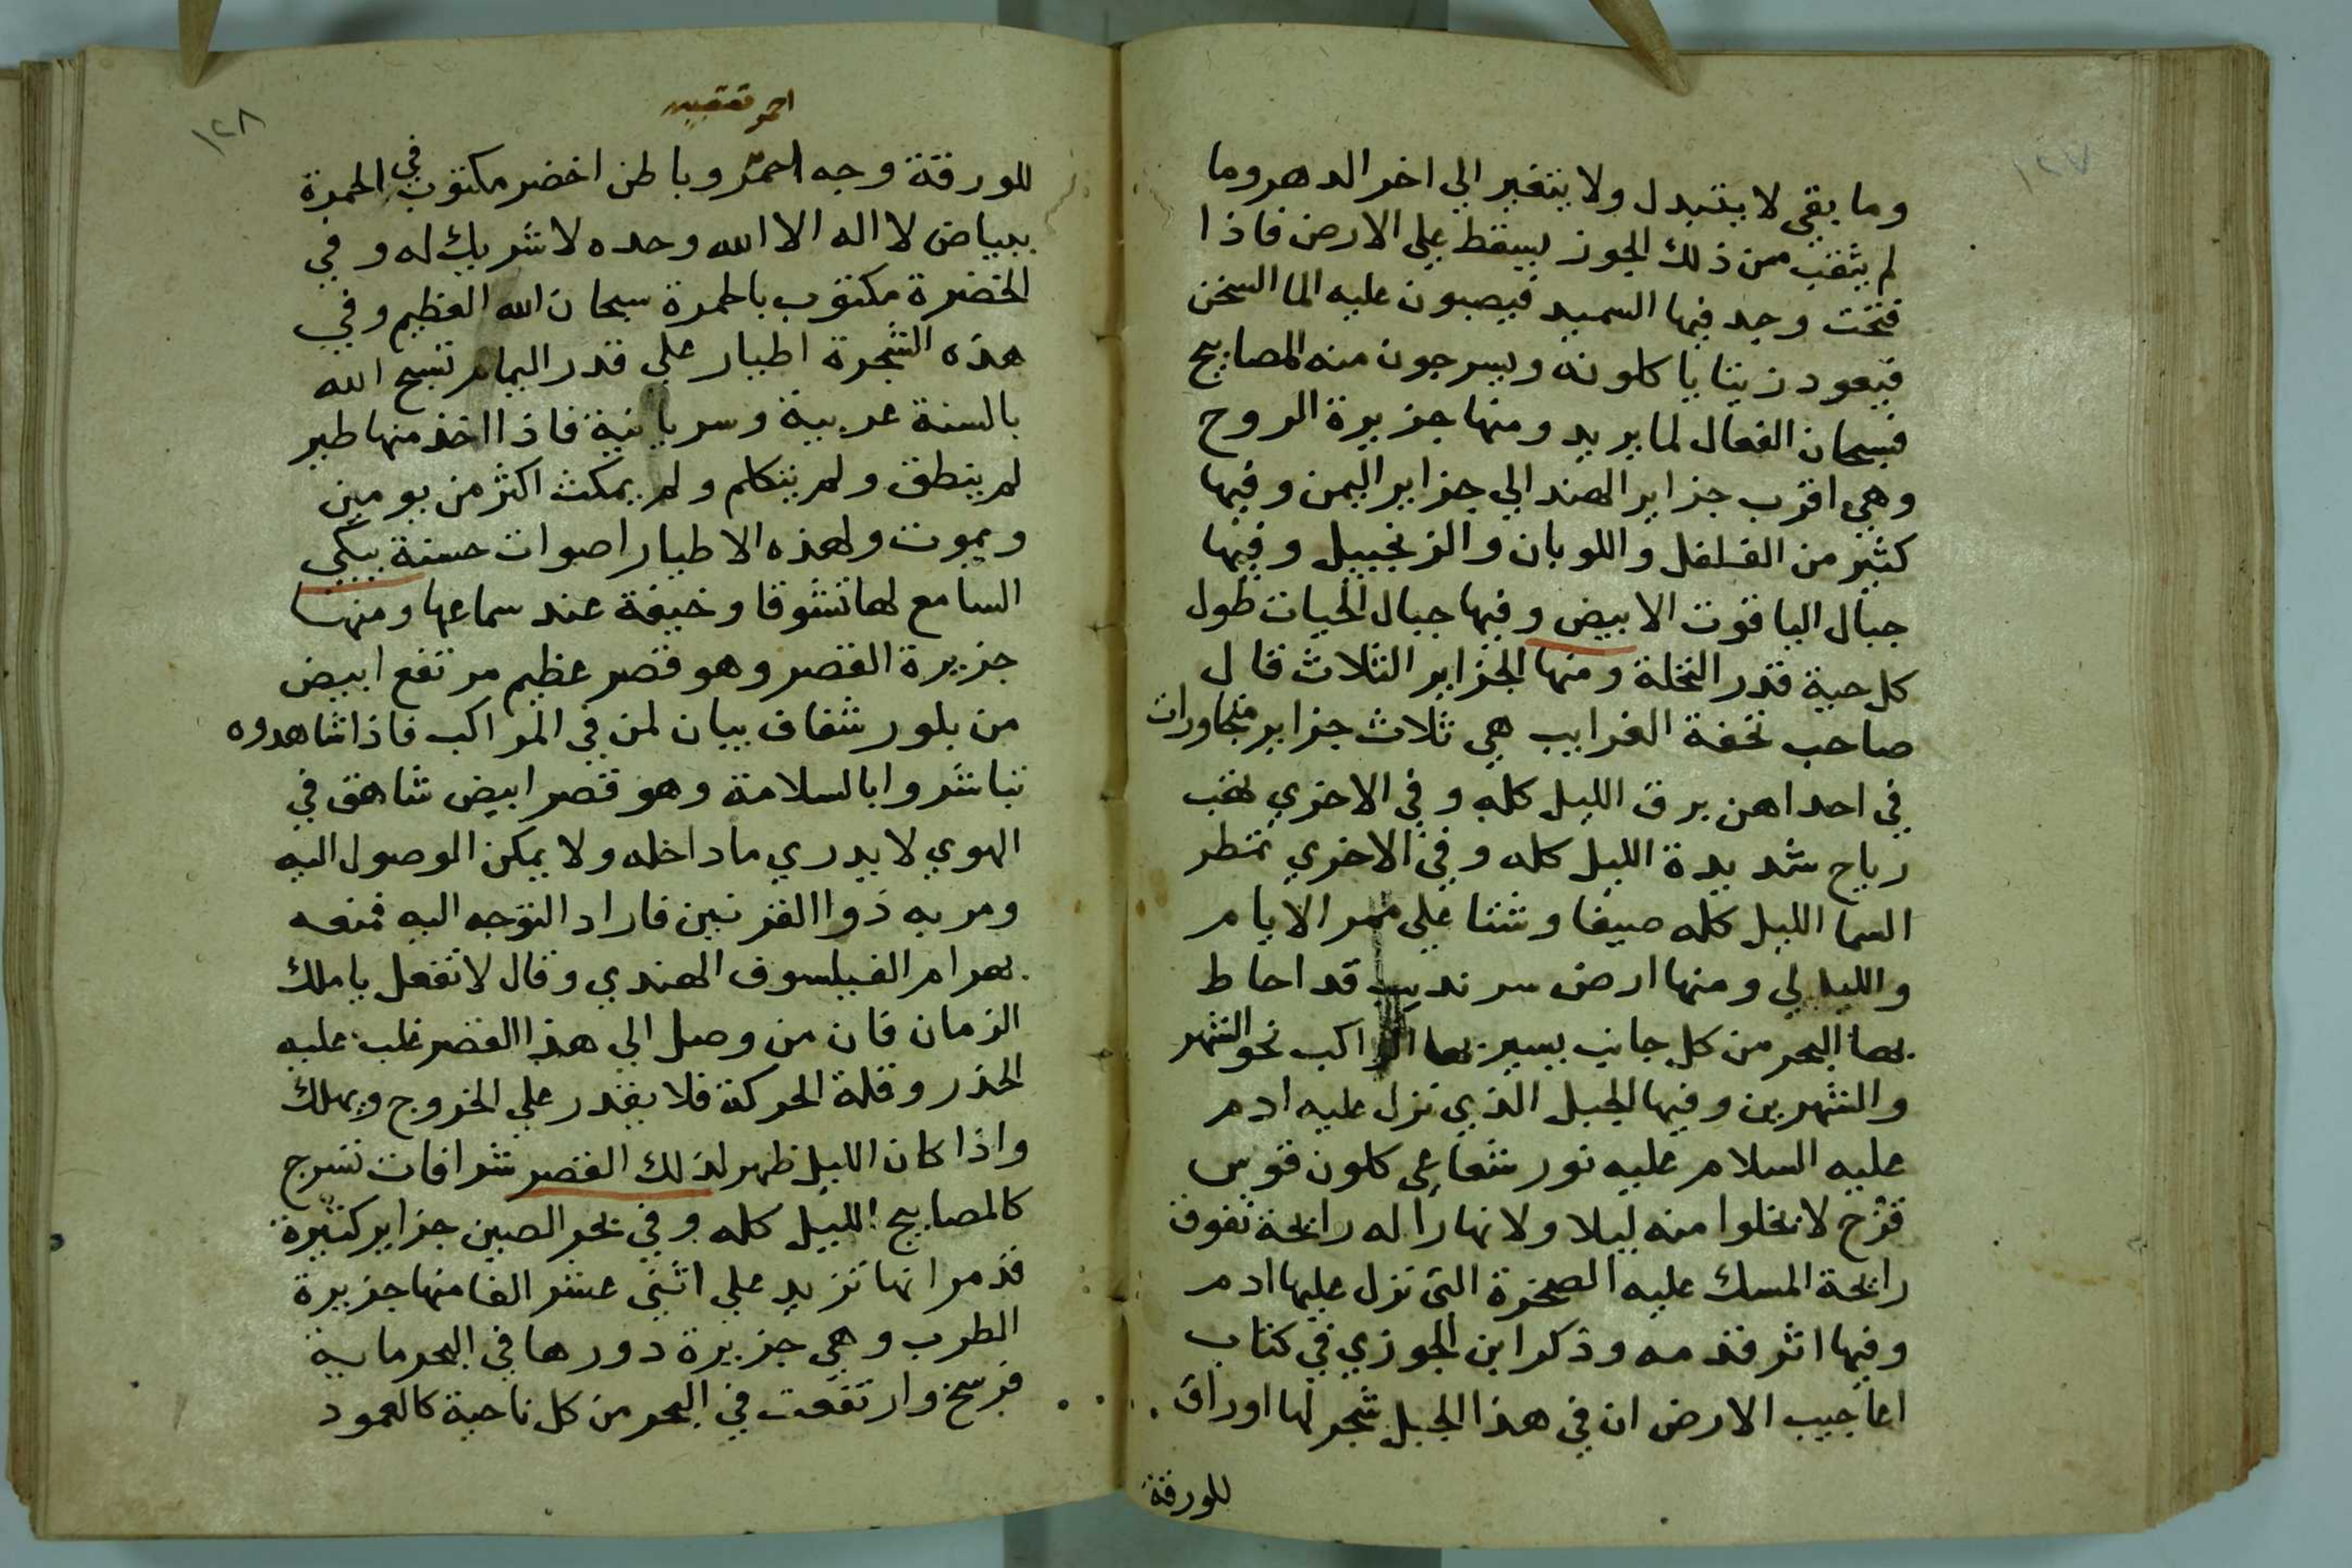 ١٢٧
وما بقي لا يتبدل ولا يتغير الي اخر الدهر وما
لم يثقب من ذلك الجوز يسقط علي الارض فاذا
فتحت وجد فيها السميد فيصبون عليه الما السخن
فيعود زيتا ياكلونه ويسرجون منه المصابيح
فسبحان الفعال لما يريد ومنها جزيرة الروح
وهي اقرب جزاير الهند الي جزاير اليمن وفيها
كثير من الفلفل واللوبان والزنجبيل وفيها
جبال الياقوت الابيض وفيها جبال الحيات طول
كل حية قدر النخلة ومنها الجزاير الثلاث قال
صاحب تحفة الغرايب هي ثلاث جزاير متجاورات
في احداهن برق الليل كله وفي الاخري تهب
رياح شديدة الليل كله وفي الاخري تمطر
السما الليل كله صيفا وشتا علي ممر الايام
والليالي ومنها ارض سرنديب قد احاط
بها البحر من كل جانب يسير بها الراكب نحو الشهر
والشهرين وفيها الجبل الذي نزل عليه ادم
عليه السلام عليه نور شعاعي كلون قوس
قزح لا تخلوا منه ليلا ولا نهارا له رايحة تفوق
رايحة المسك عليه الصخرة التي نزل عليها ادم
وفيها اثر قدمه وذكر ابن الجوزي في كتاب
اعاجيب الارض ان في هذا الجبل شجر لها اوراق
للورقة
١٢٨
احمر
للورقة وجه احمر وباطن اخضر مكتوب في الحمرة
ببياض لا اله الا الله وحده لا شريك له وفي
الخضرة مكتوب بالحمرة سبحان الله العظيم وفي
هذه الشجرة اطيار علي قدر اليمام تسبح الله
بالسنة عربية وسريانية فاذا اخذ منها طير
لم ينطق ولم يتكلم ولم يمكث اكثر من يومين
ويموت ولهذه الاطيار اصوات حسنة يبكي
السامع لها تشوقا وخيفة عند سماعها ومنها
جزيرة القصر وهو قصر عظيم مرتفع ابيض
من بلور شفاف بيان لمن في المراكب فاذا شاهدوه
تباشروا بالسلامة وهو قصر ابيض شاهق في
الهوي لا يدري ما داخله ولا يمكن الوصول اليه
ومر به ذوا القرنين فاراد التوجه اليه فمنعه
بهرام الفيلسوف الهندي وقال لا تفعل يا ملك
الزمان فان من وصل الي هذا القصر غلب عليه
الخدر وقلة الحركة فلا يقدر علي الخروج ويهلك
واذا كان الليل ظهر لذلك القصر شرافات تسرج
كالمصابيح الليل كله وفي بحر الصين جزاير كثيرة
قد مر انها تزيد علي اثني عشر الفا منها جزيرة
الطرب وهي جزيرة دورها في البحر ماية
فرسخ وارتفعت في البحر من كل ناحية كالعمود